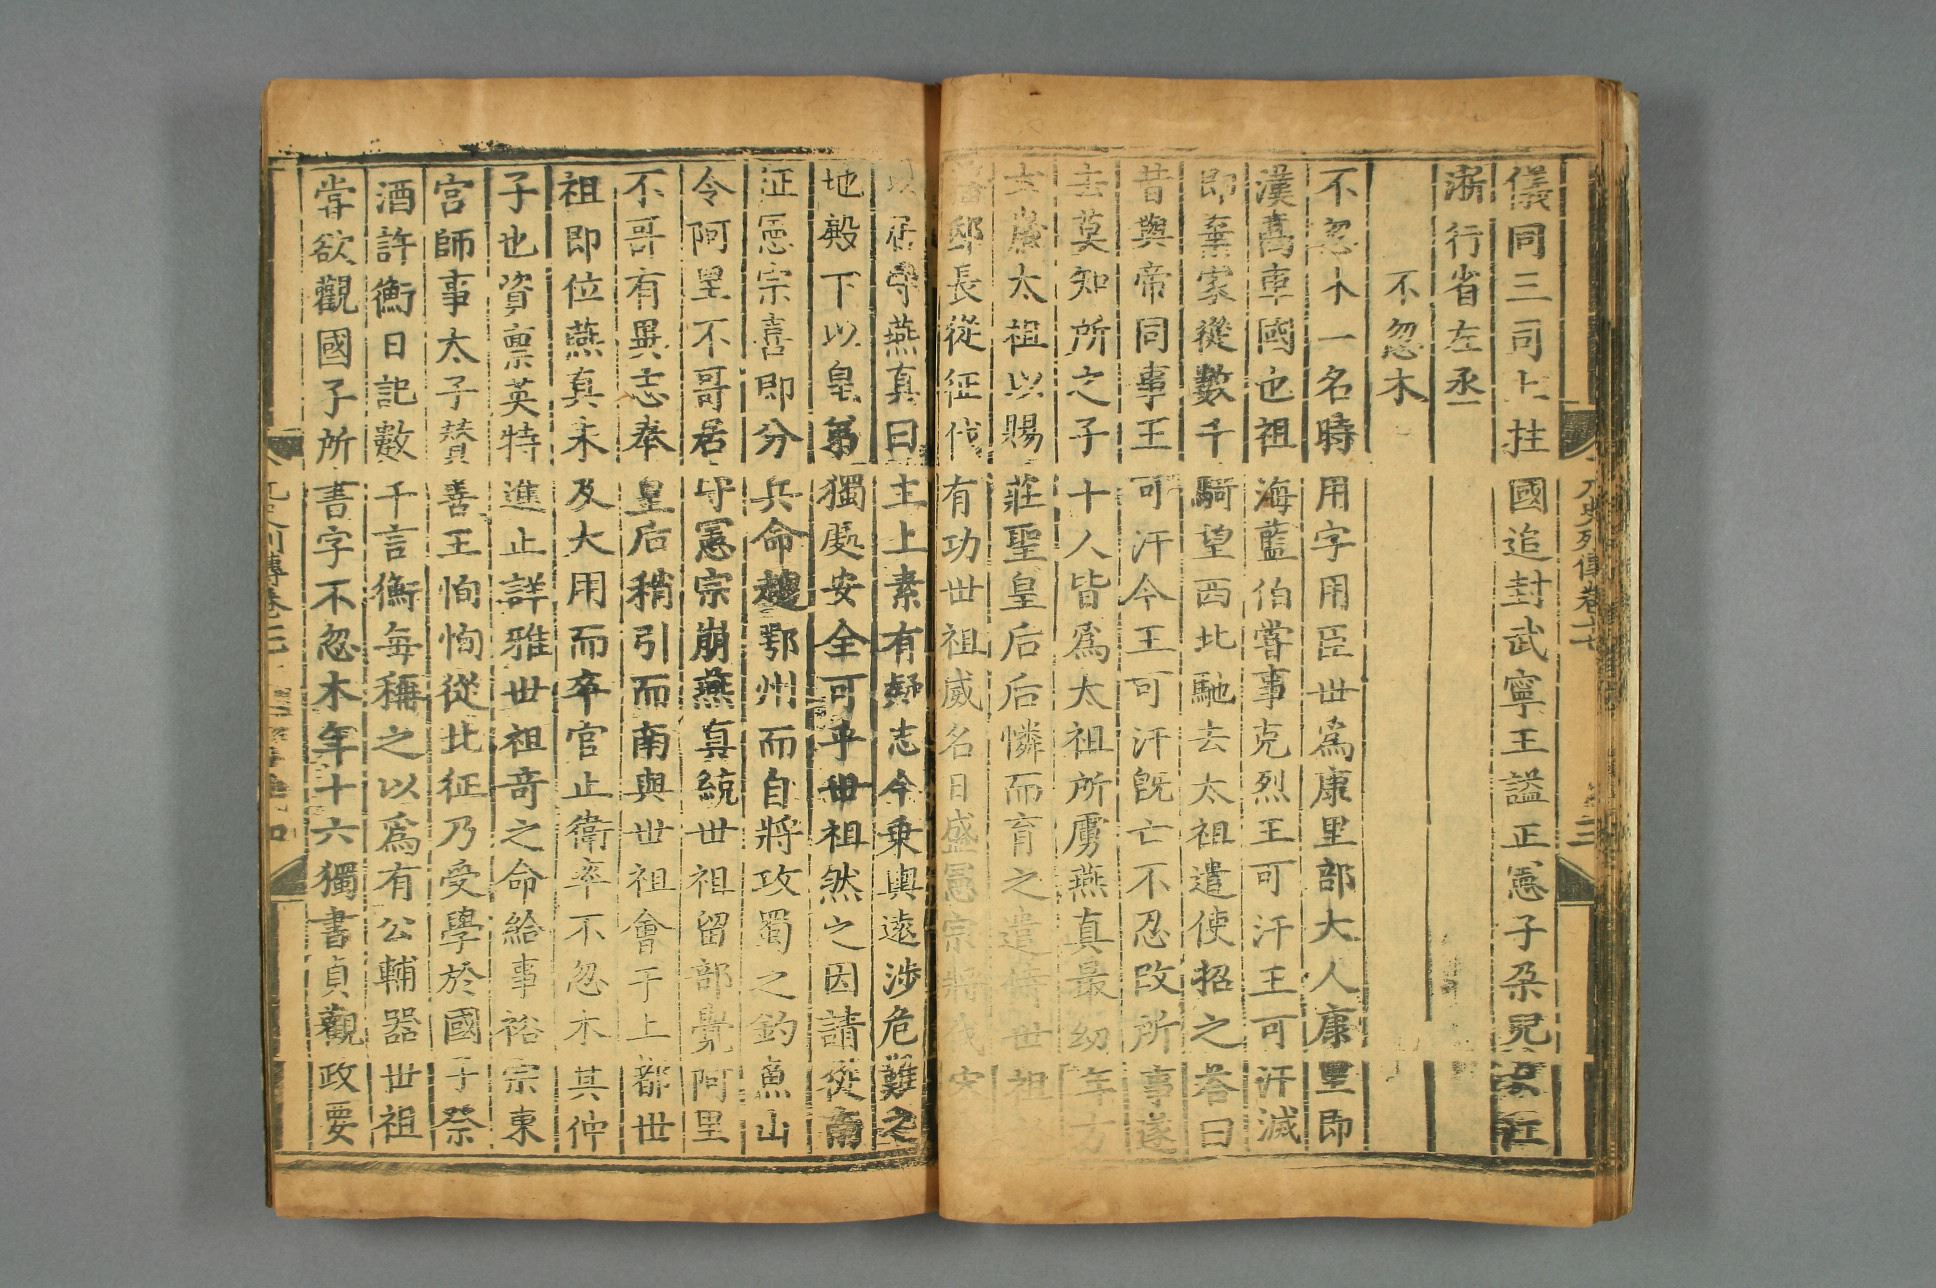 儀同三司上柱國追封武寧王謚正憲子朶兒只江
浙行省左丞
不忽木
不忽木一名時用字用臣世爲康里部大人康里即
漢髙車國也祖海藍伯嘗事克烈王可汗王可汗滅
即棄家從數千騎望西北馳去太祖遣使招之荅曰
昔與帝同事王可汗今王可汗旣亡不忍改所事遂
去莫知所之子十人皆爲太祖所虜燕真最幼年方
六歲太祖以賜莊聖皇后后憐而育之遣侍世祖
藩邸長從征伐有功世祖威名日盛憲宗將伐宋
以居守燕真曰主上素有疑志今乗輿遠涉危難之
地殿下以皇弟獨處安全可乎世祖然之因請從南
征憲宗喜即分兵命趨鄂州而自將攻蜀之釣魚山
令阿里不哥居守憲宗崩燕真統世祖留部覺阿里
不哥有異志奉皇后稍引而南與世祖會于上都世
祖即位燕真未及大用而卒官止衛率不忽木其仲
子也資禀英特進止詳雅世祖竒之命給事裕宗東
宮師事太子賛善王恂恂從北征乃受學於國子祭
酒許衡日記數千言衡每稱之以爲有公輔器世祖
嘗欲觀國子所書字不忽木年十六獨書貞觀政要